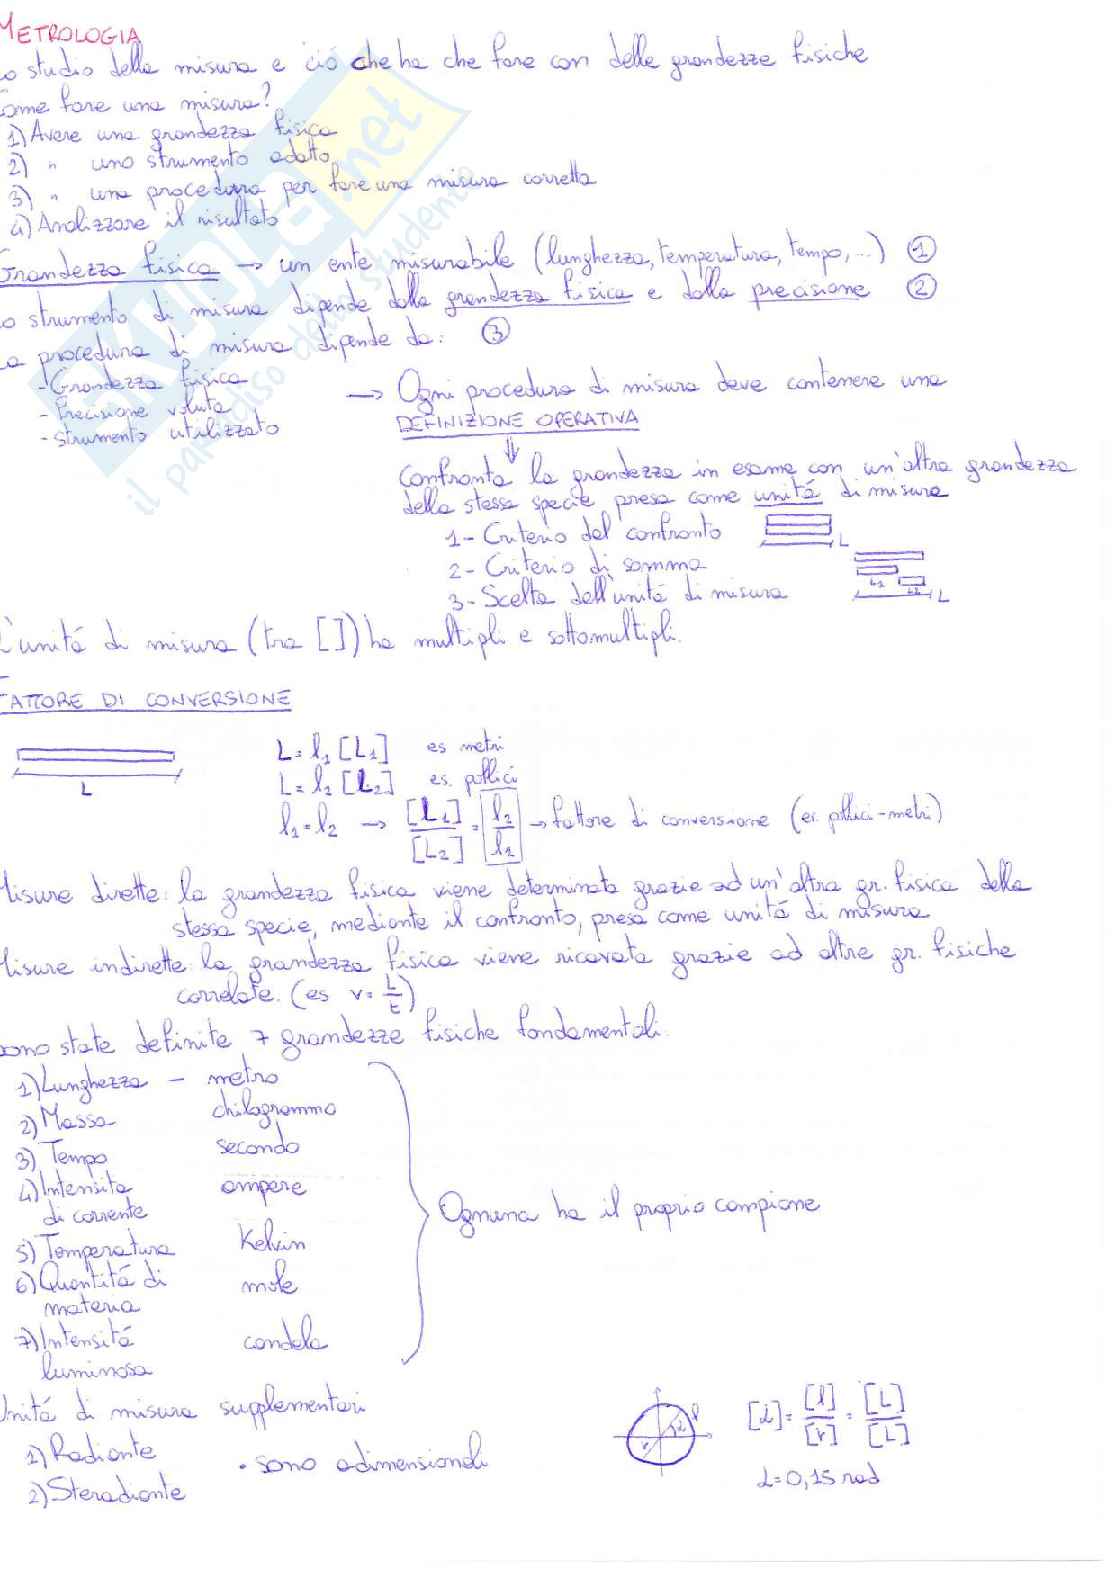 METROLOGIA
Lo studio della misura e ciò che ha che fare con delle grandezze fisiche
Come fare una misura?
1) Avere una grandezza fisica
2) " uno strumento adatto
3) " una procedura per fare una misura corretta
4) Analizzare il risultato
Grandezza fisica → un ente misurabile (lunghezza, temperatura, tempo, ...) ①
Lo strumento di misura dipende dalla grandezza fisica e dalla precisione ②
La procedura di misura dipende da: ③
- Grandezza fisica
- Precisione voluta
- strumento utilizzato
→ Ogni procedura di misura deve contenere una
DEFINIZIONE OPERATIVA
⇓
Confronta la grandezza in esame con un'altra grandezza
della stessa specie presa come unitá di misura
1- Criterio del confronto
L
2- Criterio di somma
L1 L2
3- Scelta dell'unitá di misura
L
L'unitá di misura (tra []) ha multipli e sottomultipli.
FATTORE DI CONVERSIONE
L
L = l1 [L1] es metri
L = l2 [L2] es. pollici
l1 = l2 → [L1]/[L2] = l2/l1 → fattore di conversione (es. pollici-metri)
Misure dirette: la grandezza fisica viene determinata grazie ad un'altra gr. fisica della
stessa specie, mediante il confronto, presa come unitá di misura
Misure indirette: la grandezza fisica viene ricavata grazie ad altre gr. fisiche
correlate. (es v = L/t)
Sono state definite 7 grandezze fisiche fondamentali.
1) Lunghezza - metro
2) Massa chilogrammo
3) Tempo secondo
4) Intensita ampere
di corrente
Ognuna ha il proprio campione
5) Temperatura Kelvin
6) Quantitá di mole
materia
7) Intensitá candela
luminosa
Unitá di misura supplementari
1) Radiante
• sono adimensionali
2) Steradiante
r α l
[α] = [l]/[r] = [L]/[L]
α = 0,15 rad
SKUOLA.net
il paradiso dello studente